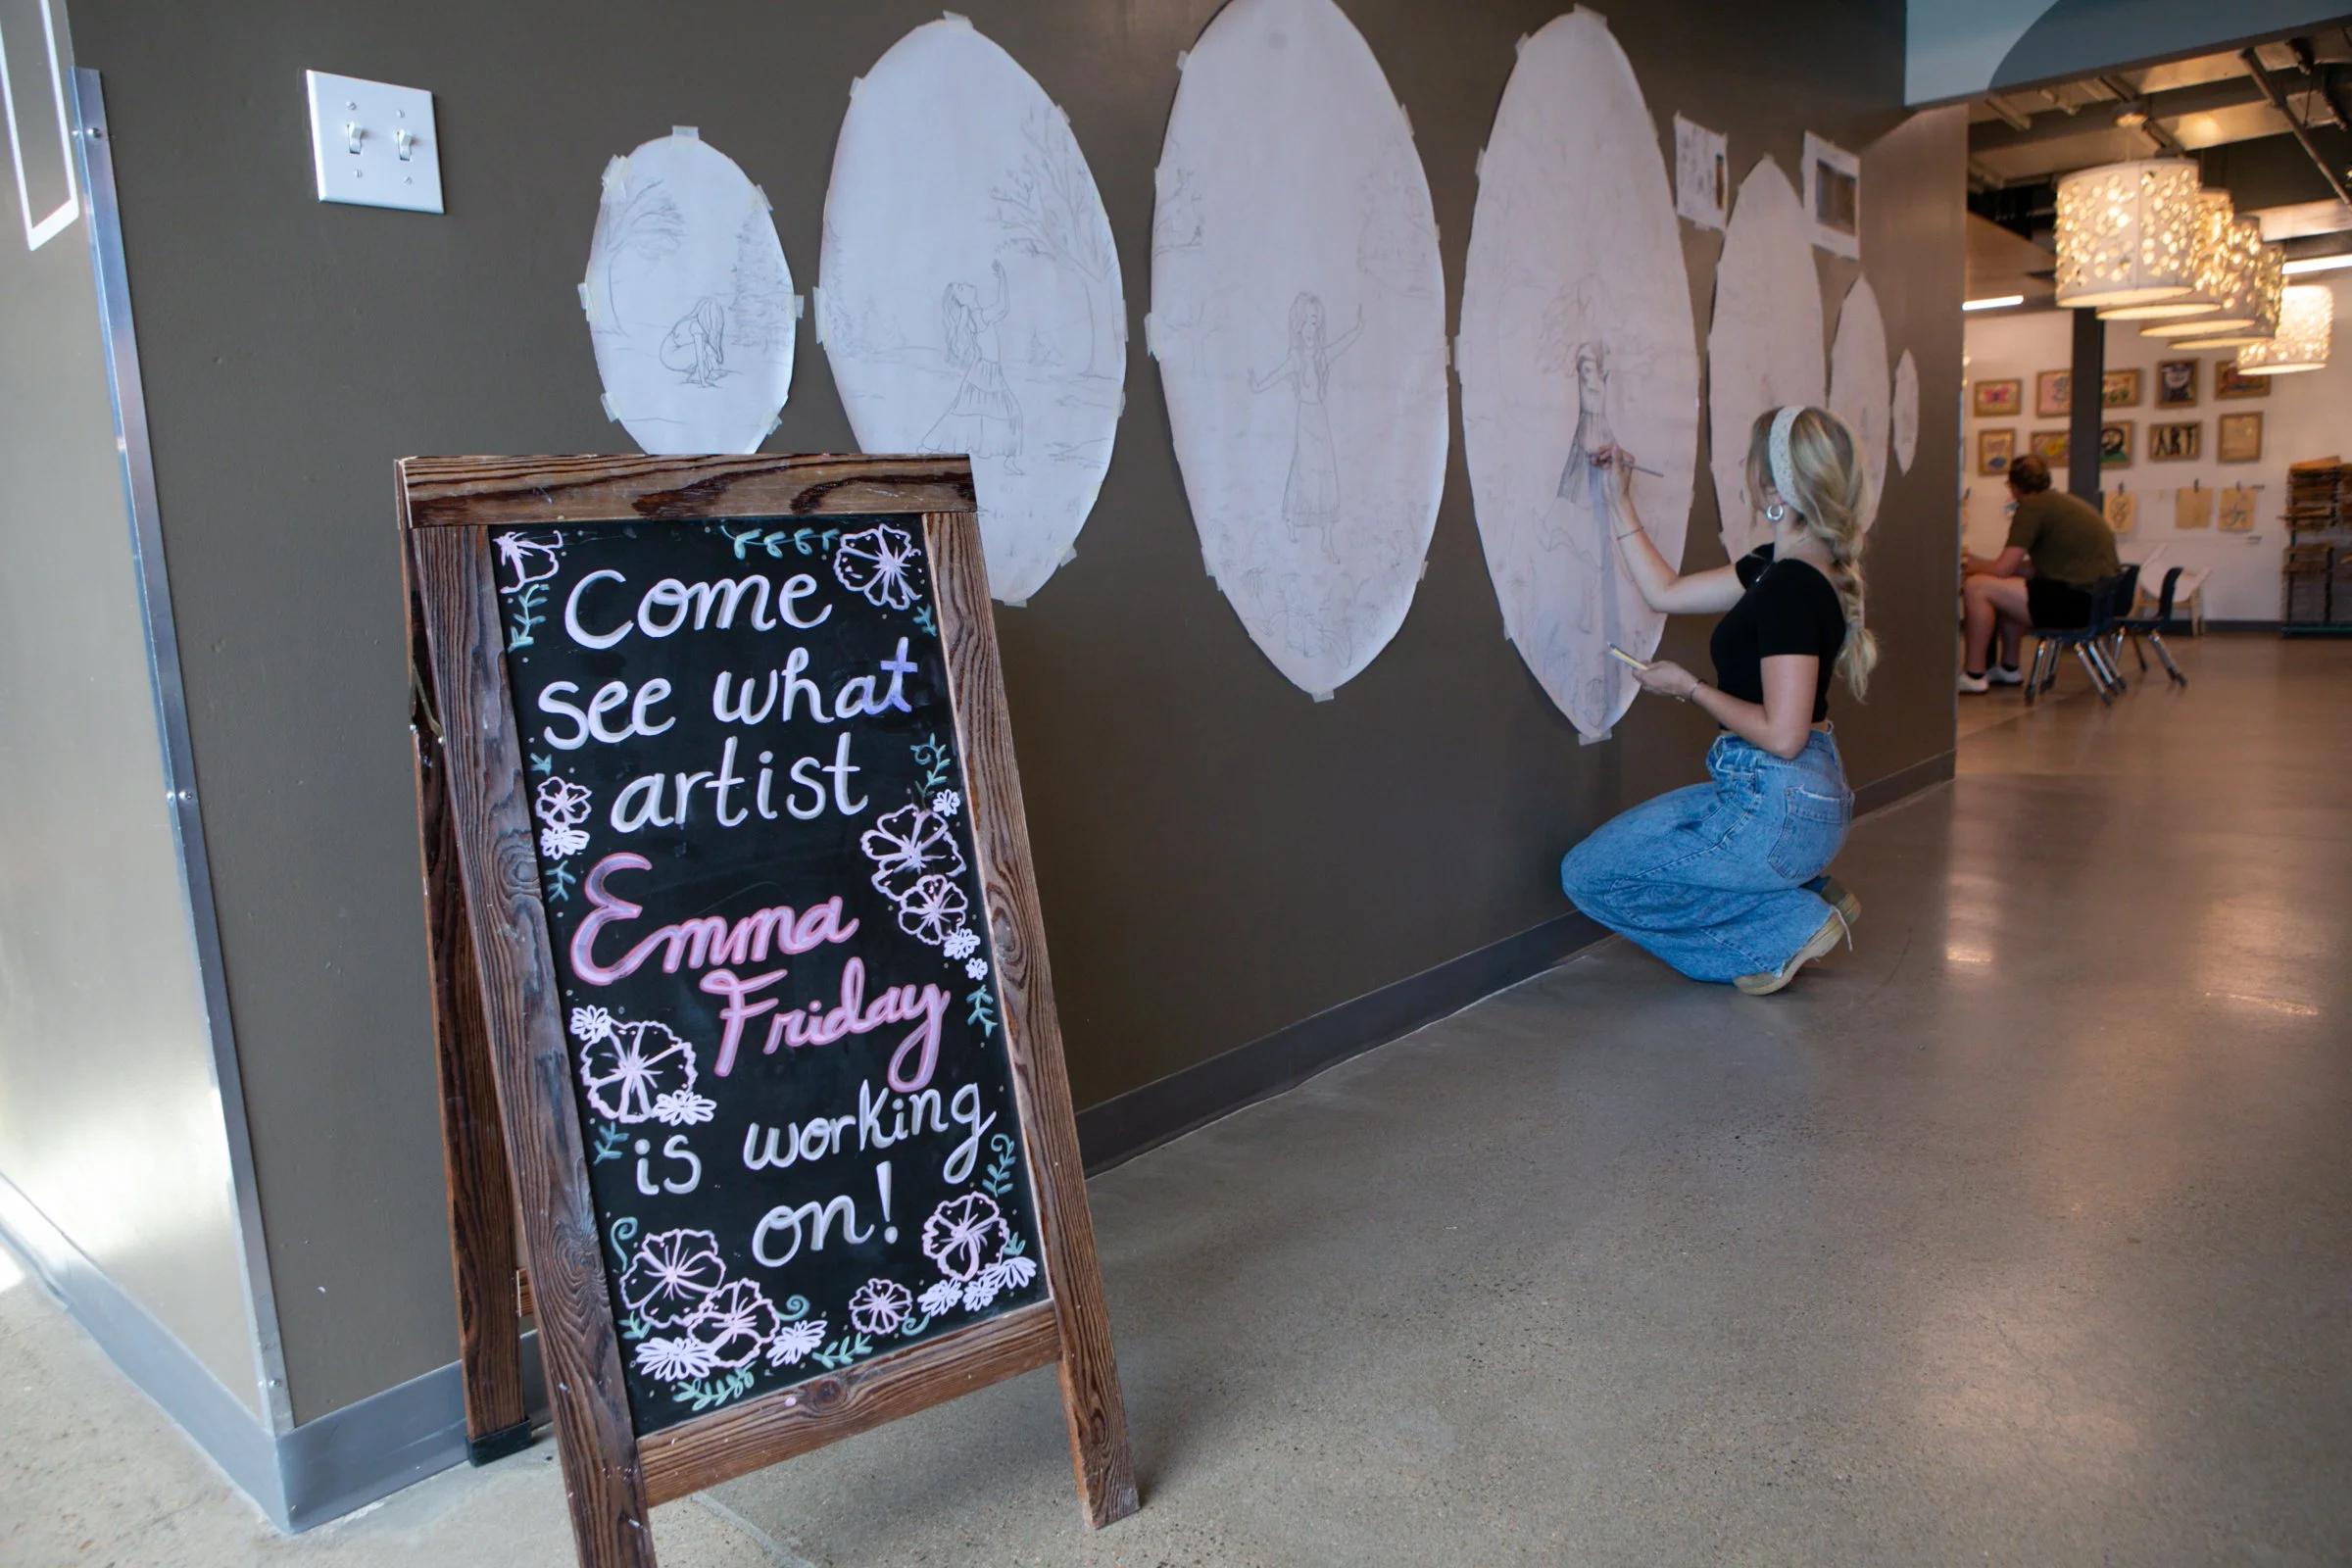 Come
see what
artist
Emma
Friday
is working
on!
ART